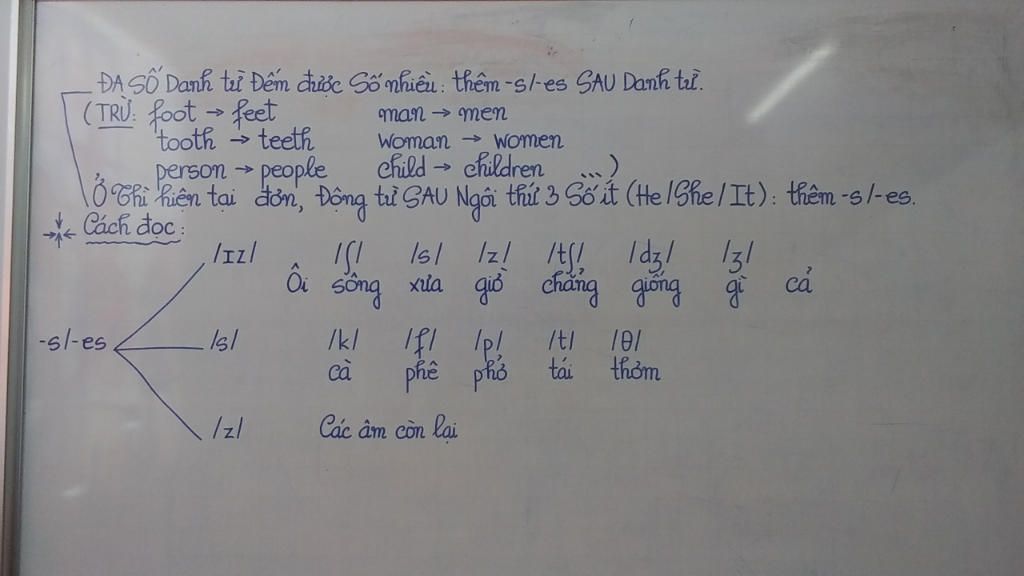 ĐA SỐ Danh từ Đếm được Số nhiều: thêm -s/-es SAU Danh từ.
(TRỪ: foot → feet man → men
tooth → teeth woman → women
person → people child → children ...)
Ở Thì hiện tại đơn, Động từ SAU Ngôi thứ 3 Số ít (He/She/It): thêm -s/-es.
Cách đọc:
/ɪz/ /ʃ/ /s/ /z/ /tʃ/ /dʒ/ /ʒ/
Ôi sông xưa giờ chẳng giống gì cả
-s/-es /s/ /k/ /f/ /p/ /t/ /θ/
cà phê phở tái thơm
/z/ Các âm còn lại